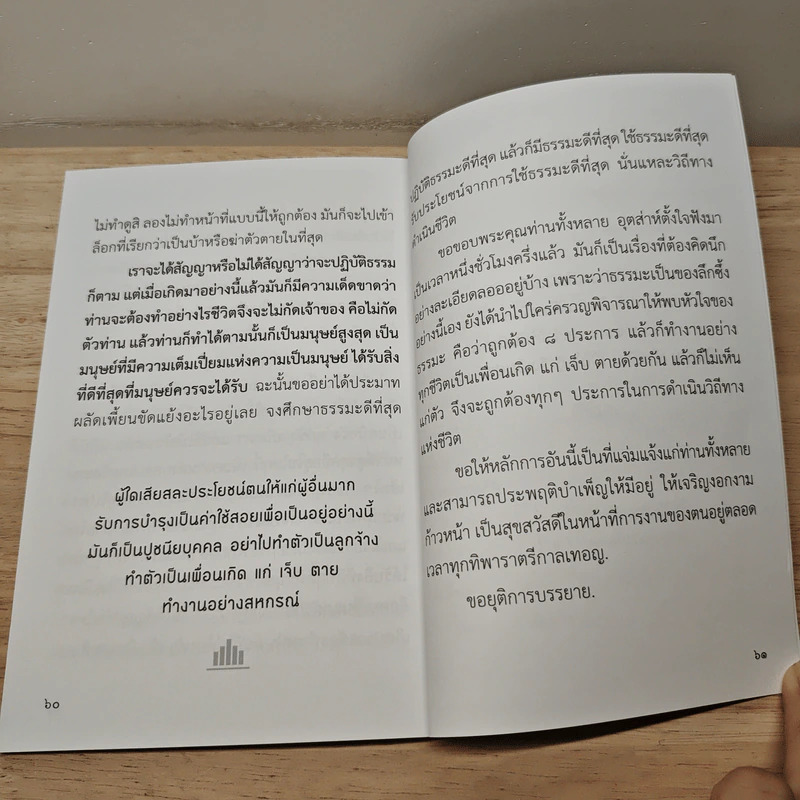 ไม่ทำดูสิ ลองไม่ทำหน้าที่แบบนี้ให้ถูกต้อง มันก็จะไปเข้า
ล็อกที่เรียกว่าเป็นบ้าหรือฆ่าตัวตายในที่สุด
เราจะได้สัญญาหรือไม่ได้สัญญาว่าจะปฏิบัติธรรม
ก็ตาม แต่เมื่อเกิดมาอย่างนี้แล้วมันก็มีความเด็ดขาดว่า
ท่านจะต้องทำอย่างไรชีวิตจึงจะไม่กัดเจ้าของ คือไม่กัด
ตัวท่าน แล้วท่านก็ทำได้ตามนั้นก็เป็นมนุษย์สูงสุด เป็น
มนุษย์ที่มีความเต็มเปี่ยมแห่งความเป็นมนุษย์ ได้รับสิ่ง
ที่ดีที่สุดที่มนุษย์ควรจะได้รับ ฉะนั้นขออย่าได้ประมาท
ผลัดเพี้ยนขัดแย้งอะไรอยู่เลย จงศึกษาธรรมะดีที่สุด
ผู้ใดเสียสละประโยชน์ตนให้แก่ผู้อื่นมาก
รับการบำรุงเป็นค่าใช้สอยเพื่อเป็นอยู่อย่างนี้
มันก็เป็นปูชนียบุคคล อย่าไปทำตัวเป็นลูกจ้าง
ทำตัวเป็นเพื่อนเกิด แก่ เจ็บ ตาย
ทำงานอย่างสหกรณ์
๖๐
ปฏิบัติธรรมะดีที่สุด แล้วก็มีธรรมะดีที่สุด ใช้ธรรมะดีที่สุด
รับประโยชน์จากการใช้ธรรมะดีที่สุด นั่นแหละวิถีทาง
ดำเนินชีวิต
ขอขอบพระคุณท่านทั้งหลาย อุตส่าห์ตั้งใจฟังมา
เป็นเวลาหนึ่งชั่วโมงครึ่งแล้ว มันก็เป็นเรื่องที่ต้องคิดนึก
อย่างละเอียดลอออยู่บ้าง เพราะว่าธรรมะเป็นของลึกซึ้ง
อย่างนี้เอง ยังได้นำไปใคร่ครวญพิจารณาให้พบหัวใจของ
ธรรมะ คือว่าถูกต้อง ๘ ประการ แล้วก็ทำงานอย่าง
ทุกชีวิตเป็นเพื่อนเกิด แก่ เจ็บ ตายด้วยกัน แล้วก็ไม่เห็น
แก่ตัว จึงจะถูกต้องทุกๆ ประการในการดำเนินวิถีทาง
แห่งชีวิต
ขอให้หลักการอันนี้เป็นที่แจ่มแจ้งแก่ท่านทั้งหลาย
และสามารถประพฤติบำเพ็ญให้มีอยู่ ให้เจริญงอกงาม
ก้าวหน้า เป็นสุขสวัสดีในหน้าที่การงานของตนอยู่ตลอด
เวลาทุกทิพาราตรีกาลเทอญ.
ขอยุติการบรรยาย.
๖๑